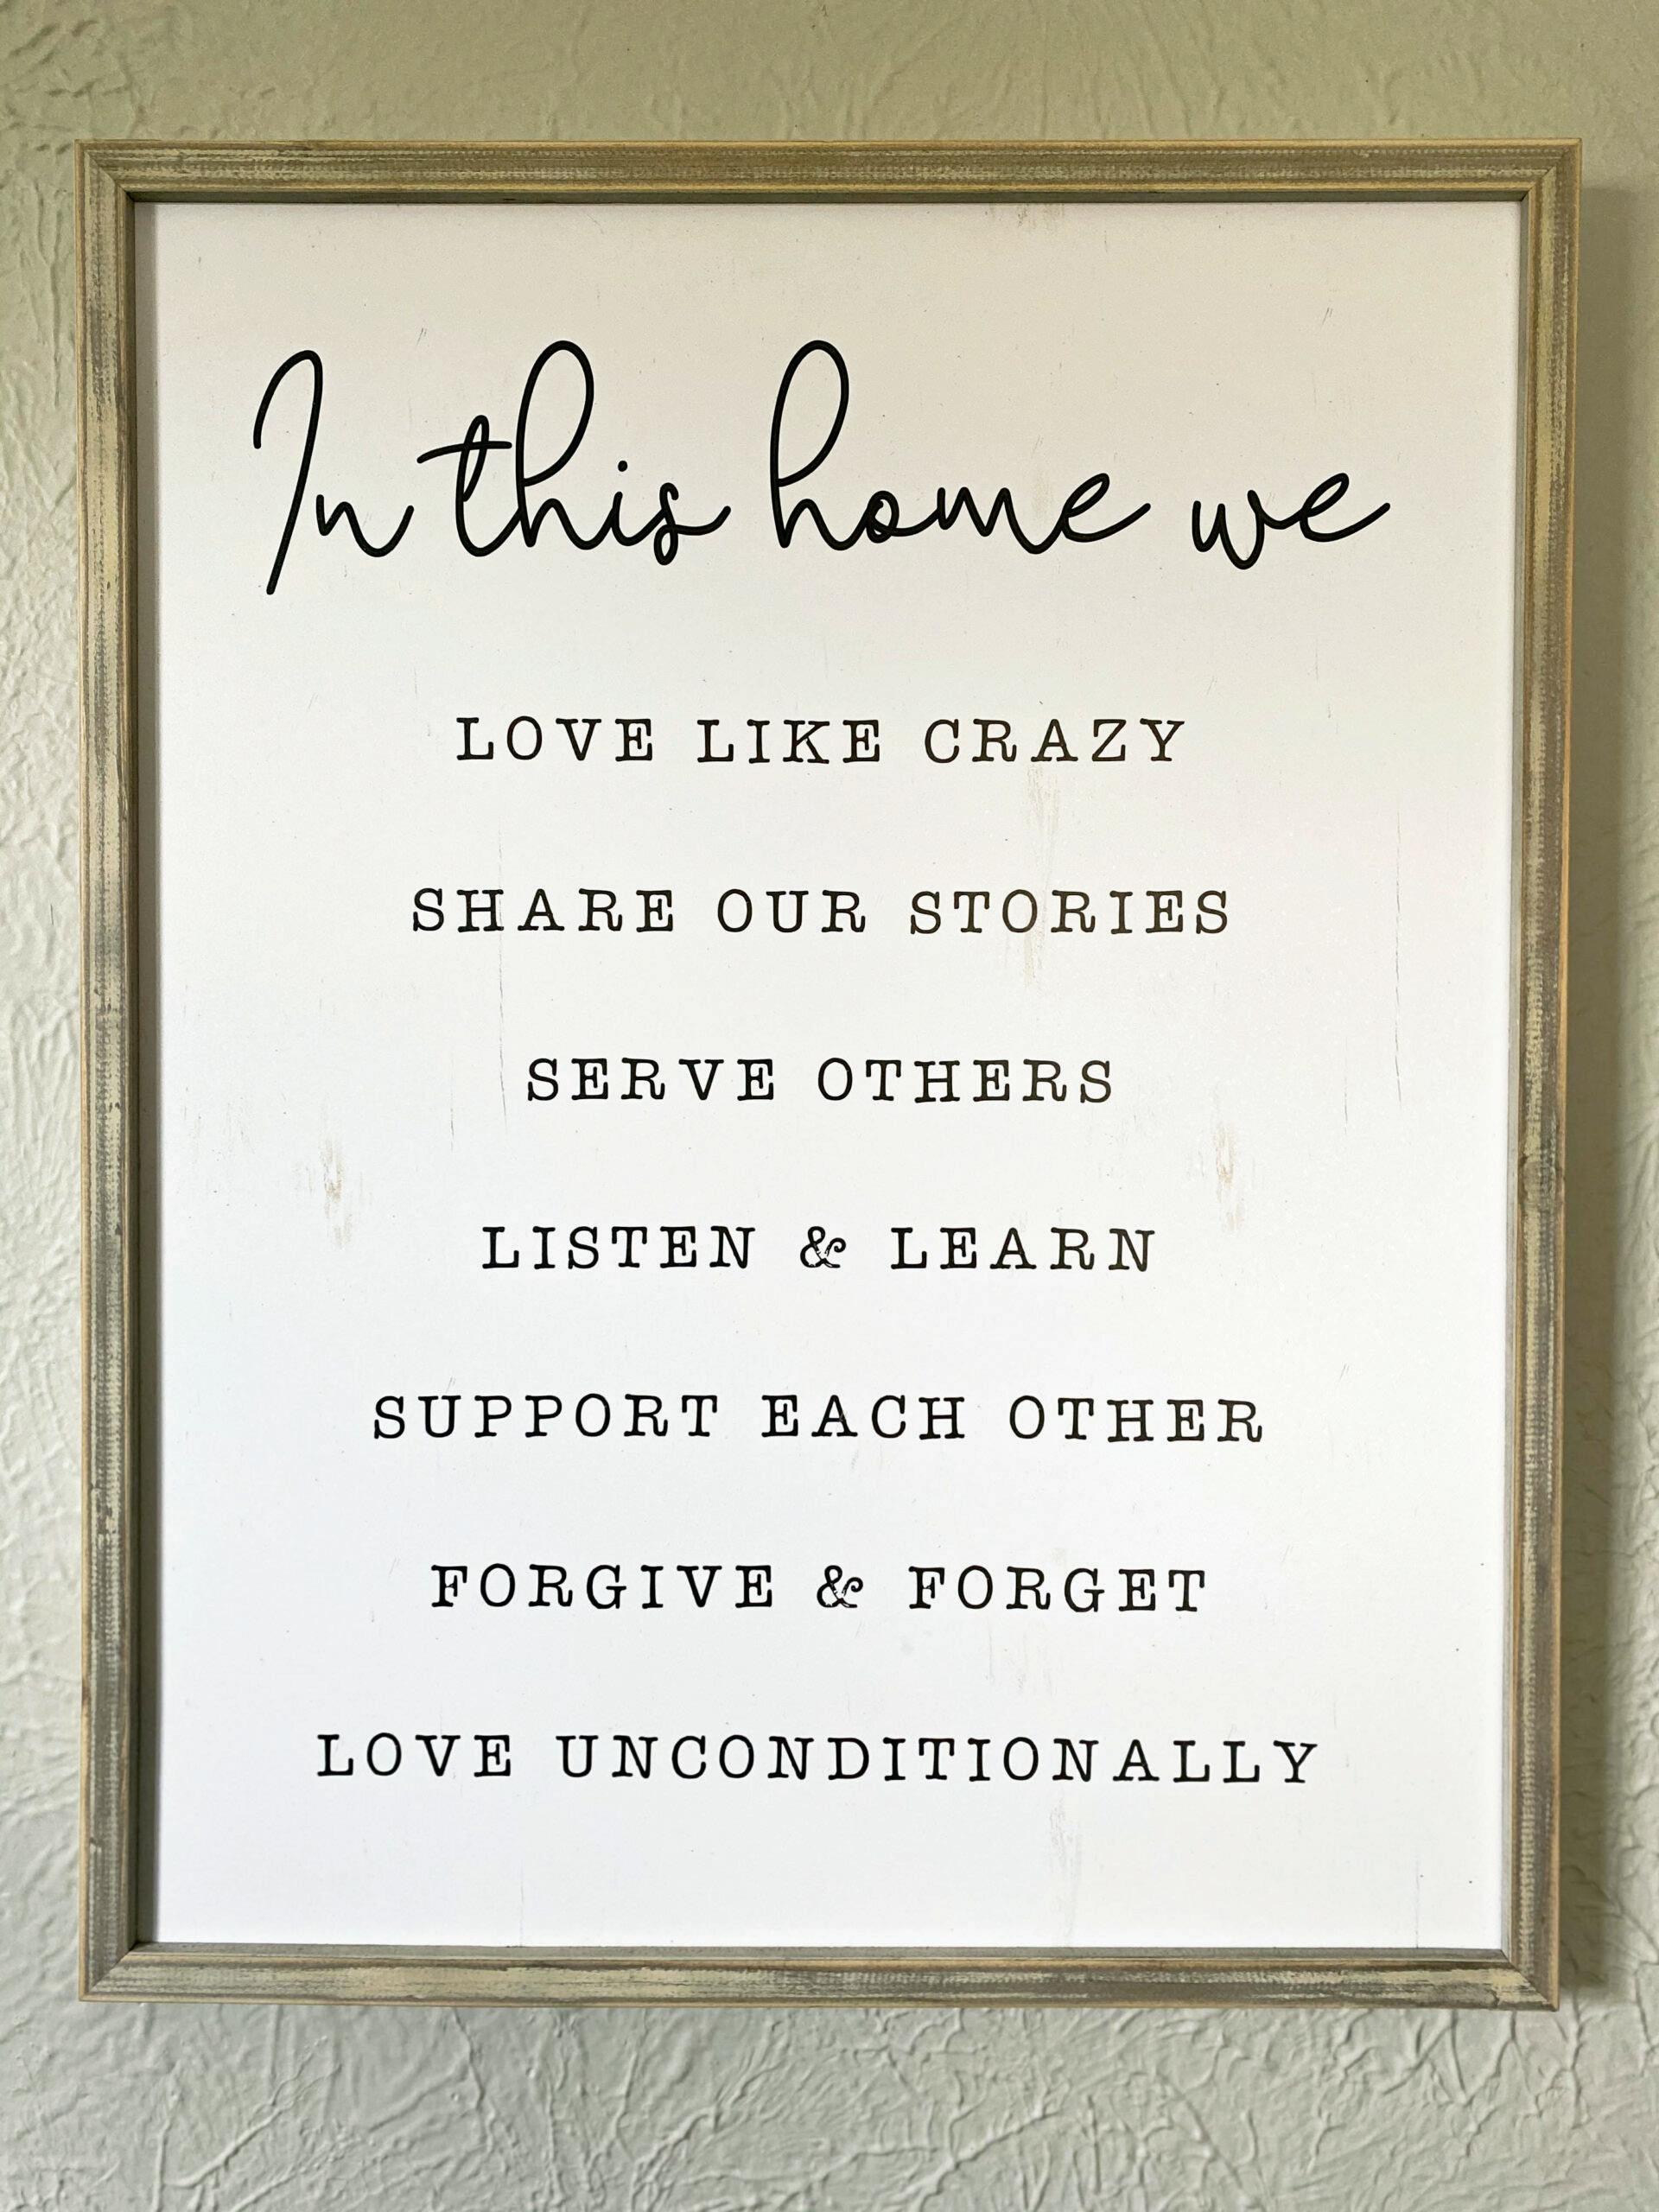 In this home we
LOVE LIKE CRAZY
SHARE OUR STORIES
SERVE OTHERS
LISTEN & LEARN
SUPPORT EACH OTHER
FORGIVE & FORGET
LOVE UNCONDITIONALLY